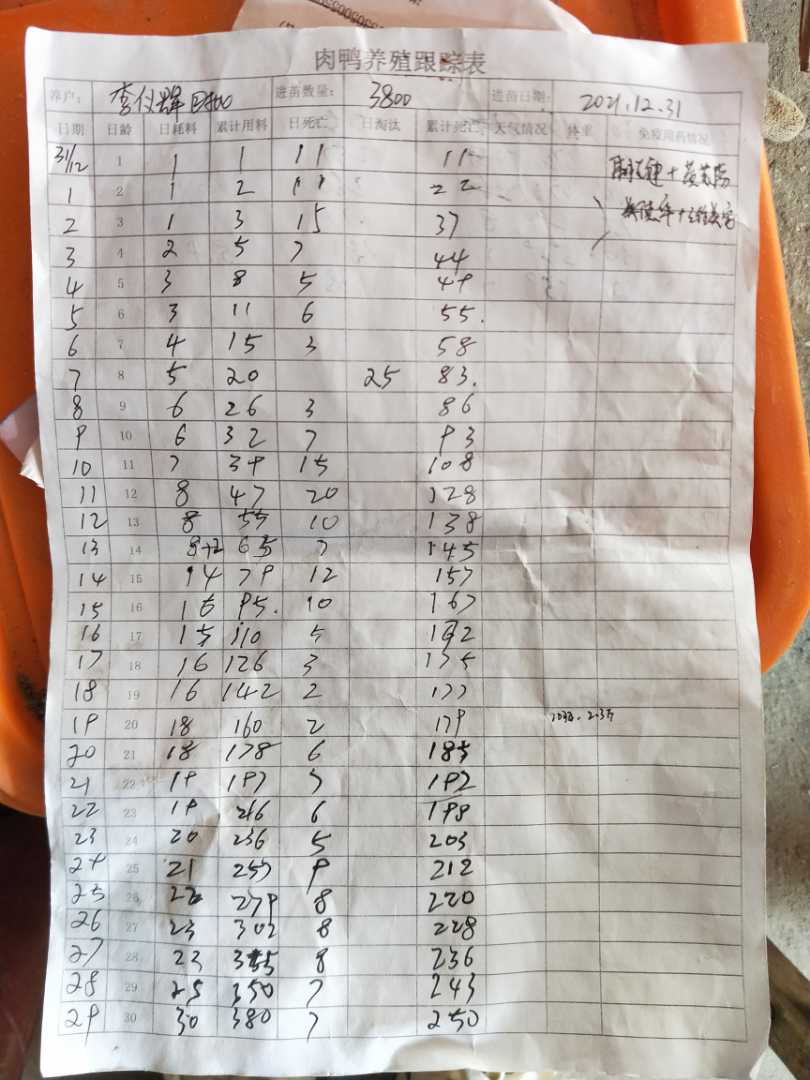 肉鸭养殖跟踪表
养户: 李仪辉 进苗数量: 3800 进苗日期: 2021.12.31
日期 日龄 日耗料 累计用料 日死亡 日淘汰 累计死亡 天气情况 终重 免疫用药情况
31/12 1 1 1 11 11
1 2 1 2 11 22
2 3 1 3 15 37
3 4 2 5 7 44
4 5 3 8 5 49
5 6 3 11 6 55.
6 7 4 15 3 58
7 8 5 20 25 83.
8 9 6 26 3 86
9 10 6 32 7 93
10 11 7 39 15 108
11 12 8 47 20 128
12 13 8 55 10 138
13 14 8+2 65 7 145
14 15 14 79 12 157
15 16 16 95. 10 167
16 17 15 110 5 172
17 18 16 126 3 175
18 19 16 142 2 177
19 20 18 160 2 179
20 21 18 178 6 185
21 22 19 197 7 192
22 23 19 216 6 198
23 24 20 236 5 203
24 25 21 257 9 212
25 26 22 279 8 220
26 27 23 302 8 228
27 28 23 325 8 236
28 29 25 350 7 243
29 30 30 380 7 250